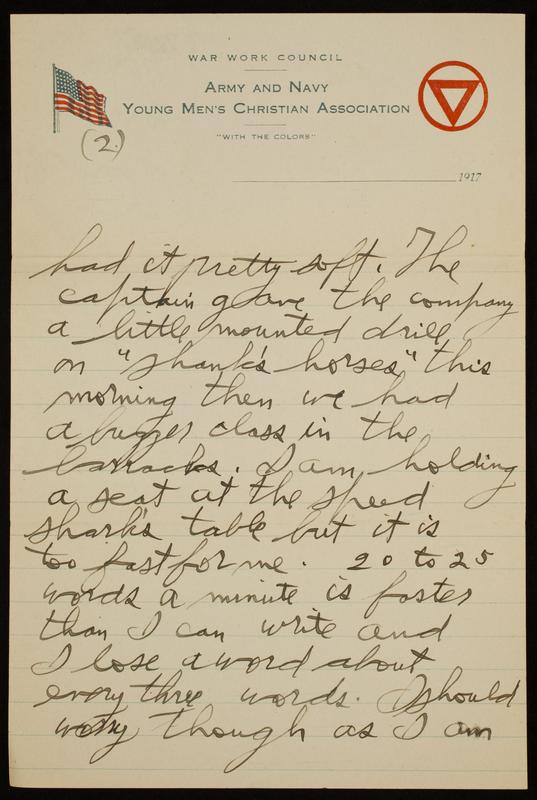 WAR WORK COUNCIL
ARMY AND NAVY
YOUNG MEN'S CHRISTIAN ASSOCIATION
"WITH THE COLORS"
(2.)
1917
had it pretty soft. The
captain gave the company
a little mounted drill
on "shank's horses" this
morning then we had
a buzzer class in the
barracks. I am holding
a seat at the speed
shark's table but it is
too fast for me. 20 to 25
words a minute is faster
than I can write and
I lose a word about
every three words. I should
worry though as I am